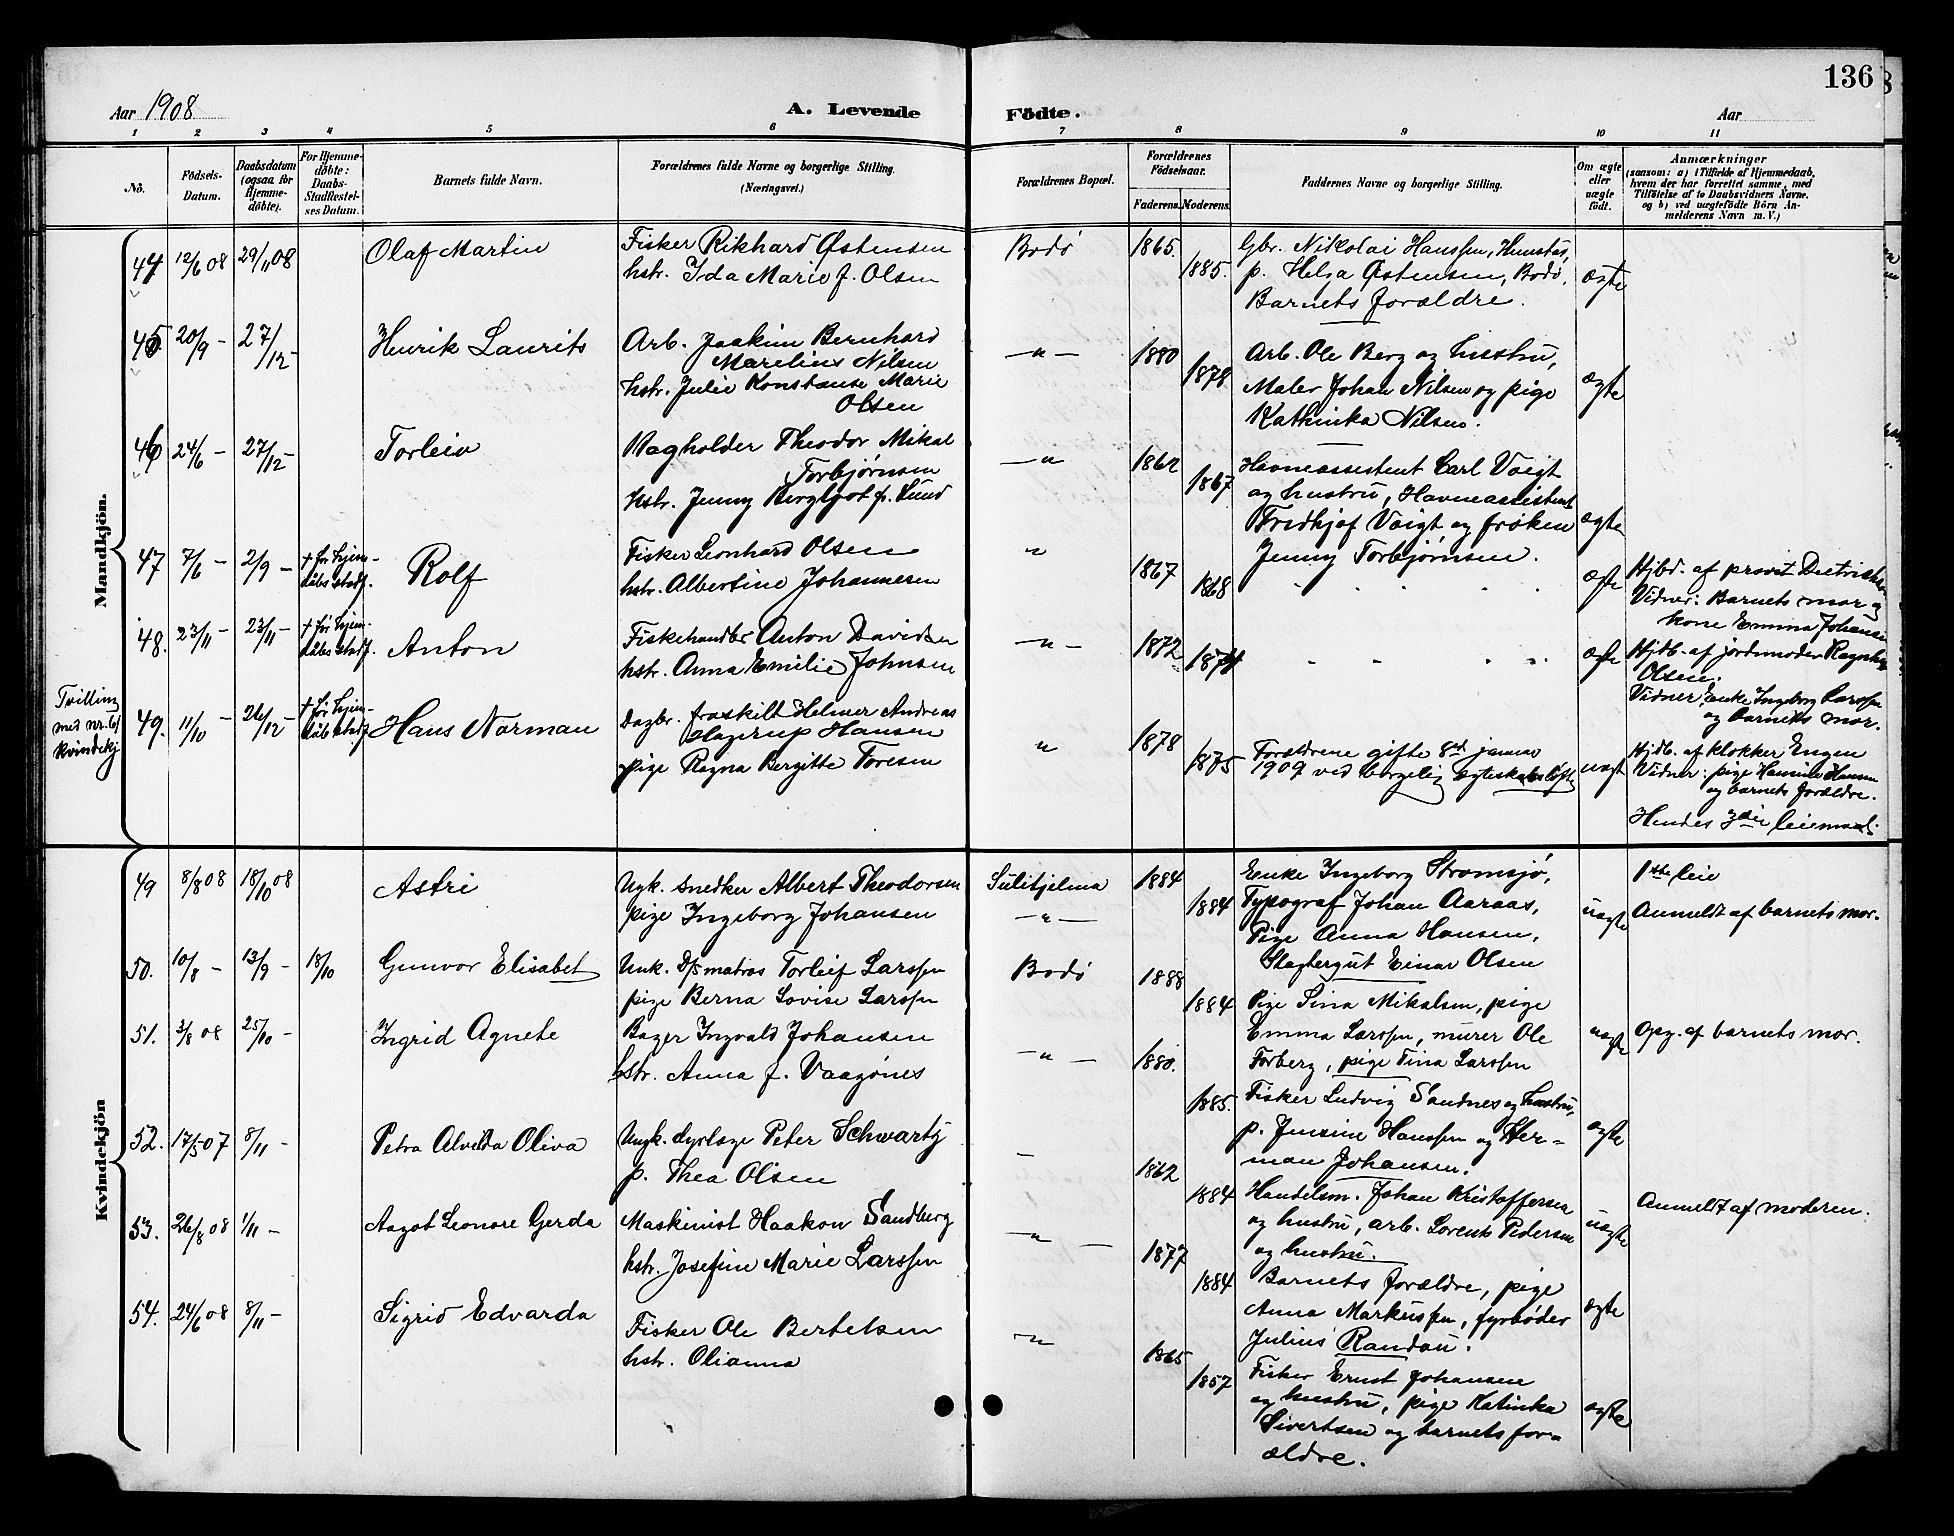 136
Aar 1908
A. Levende
Födte.
Aar
1 2 3 4 5 6 7 8 9 10 11
No.
Födsels-
Datum.
Daabsdatum
(ogsaa for
Hjemme-
döbte).
For Hjemme-
döbte:
Daabs-
Stadfæstel-
ses Datum.
Barnets fulde Navn.
Forældrenes fulde Navne og borgerlige Stilling.
(Næringsvei.)
Forældrenes Bopæl.
Forældrenes
Födselsaar.
Faderens. Moderens.
Faddernes Navne og borgerlige Stilling.
Om ægte
eller
uægte
født.
Anmærkninger
(saasom: a) i Tilfælde af Hjemmedaab,
hvem der har forrettet samme, med
Tilføielse af to Daabsvidners Navne.
og b) ved uægtefödte Börn An-
melderens Navn m. V.)
Mandkjön.
44 12/6 08 29/11 08 Olaf Martin
Fisker Rikhard Østensen
hstr. Ida Marie f. Olsen
Bodø 1865. 1885.
Gbr. Nikolai Hanssen, Hunstad,
p. Helga Østensen, Bodø,
Barnets forældre.
ægte
45 20/9 – 27/12 – Henrik Laurits
Arb. Joakim Bernhard
Marelius Nilsen
hstr. Julie Konstanse Marie
Olsen
–"– 1880 1878
Arb. Ole Berg og hustru,
Maler Johan Nilsen og pige
Kathinka Nilsen.
ægte
46 24/6 – 27/12 – Torleiv
Vagholder Theodor Mikal
Torbjørnsen
hstr. Jenny Bergljot f. Lund
–" 1862 1867
Havneassistent Carl Voigt
og hustru, Havneassistent
Fridhjof Voigt og frøken
Jenny Torbjørnsen.
ægte
47 7/6 – 2/9 – † før hjem-
dåbs stadf.
Rolf
Fisker Leonhard Olsen
hstr. Albertine Johannesen
" 1867 1868
ægte
Hjbd. af provst Dietrichson
Vidner: Barnets mor og
kone Emma Johansen
48. 23/11 – 23/11 – † før hjem-
dåbs stadf.
Anton
Fiskehandler Anton Davidsen
hstr. Anna Emilie Johnsen
–"– 1872 1874
ægte
Hjdb. af jordmoder Ragnhild
Olsen.
Vidner, Enke Ingeborg Larssen
og barnets mor.
Tvilling
med nr. 61
kvindekj
49. 11/10 – 26/12 – † før hjem-
dåb stadf.
Hans Norman
Dagbr. fraskilt Helmer Andreas
Hagerup Hansen
pige Ragna Bergitte Toresen
" 1878 1875
Forældrene gifte 8d januar
1909 ved borgelig egteskabsløfte
uægte
Hjdb. af klokker Engen
Vidner: pige Hansine Hansen
og barnets forældre.
Hendes 3die leiemaal.
Kvindekjön
49 8/8 08 18/10 08 Astri
Ugk. snedker Albert Theodorsen
pige Ingeborg Johansen
Sulitjelma
–"–
1884 1884
Enke Ingeborg Strømsjø,
Typograf Johan Aaraas,
Pige Anna Hansen,
Slagtergut Einar Olsen
uægte
1ste leie
Anmeldt af barnets mor.
50. 10/8 – 13/9 – 18/10 Gunvor Elisabet
Unk. D/s matros Torleif Larssen
pige Berna Lovise Larssen
Bodø 1888 1884
Pige Sina Mikalsen, pige
Emma Larssen, murer Ole
Torberg, pige Tina Larssen
uægte
Opg. af barnets mor.
51. 3/8 08 25/10 – Ingrid Agnete
Bager Ingvald Johansen
hstr. Anna f. Vaagønes
–"– 1880. 1885.
Fisker Ludvig Sandnes og hustru,
p. Jensine Hanssen og Her-
man Johansen.
ægte
52. 17/5 07 8/11 – Petra Alvilda Oliva
Ungk. dyrlæge Peter Schwartz
p. Thea Olsen
– 1862 1884
Handelsm. Johan Kristoffersen
og hustru, arb. Lorents Pedersen
og hustru.
uægte
Anmeldt af moderen.
53. 26/8 08 1/11 – Aagot Leonore Gerda
Maskinist Haakon Sandberg
hstr. Josefine Marie Larssen
–"– 1877 1884
Barnets forældre, pige
Anna Markussen, fyrbøder
Julius Randau.
ægte
54. 24/6 08 8/11 – Sigrid Edvarda
Fisker Ole Bertelsen
hstr. Olianna
–"– 1865 1857
Fisker Ernst Johansen
og hustru, pige Katinka
Sivertsen og barnets for-
ældre.
ægte